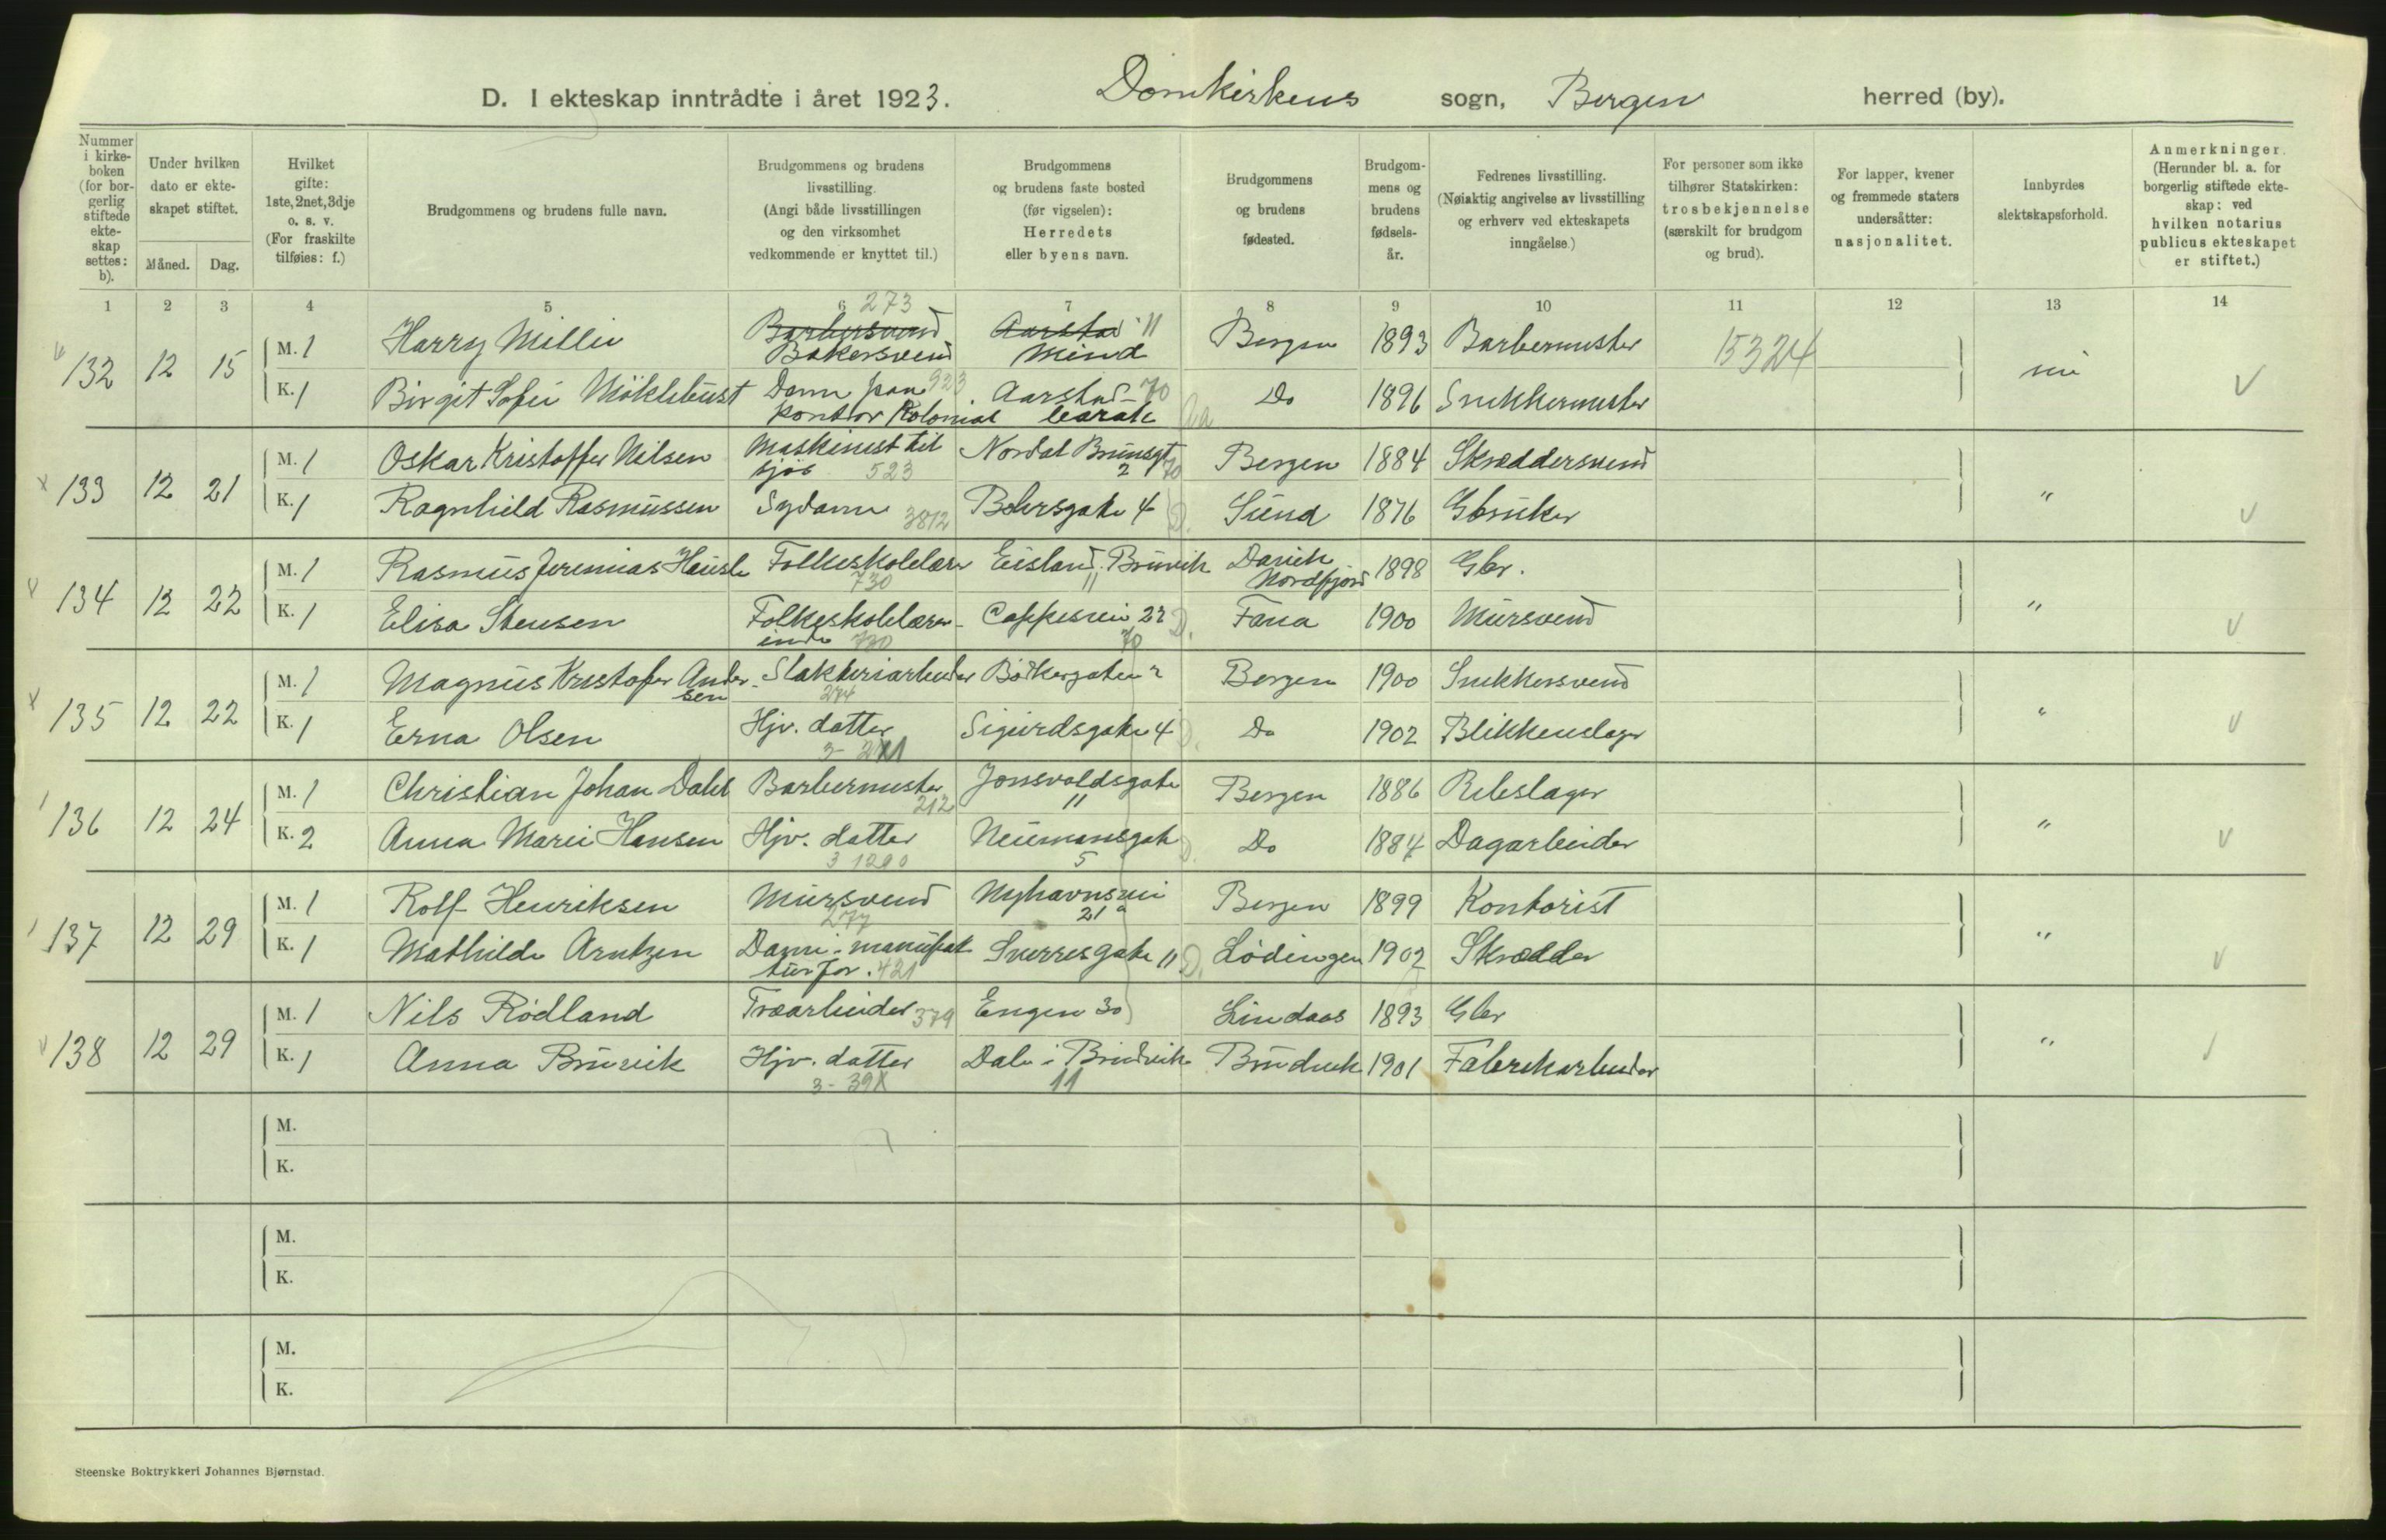 D. I ekteskap inntrådte i året 1923. Domkirkens sogn, Bergen herred (by).
Nummer i kirke-boken (for bor-gerlig stiftede ekte-skap settes: b).
Under hvilken dato er ekte-skapet stiftet.
Måned. Dag.
Hvilket gifte: 1ste, 2net, 3dje o. s. v. (For fraskilte tilføies: f.)
Brudgommens og brudens fulle navn.
Brudgommens og brudens livsstilling. (Angi både livsstillingen og den virksomhet vedkommende er knyttet til.)
Brudgommens og brudens faste bosted (før vigselen): Herredets eller byens navn.
Brudgommens og brudens fødested.
Brudgom-mens og brudens fødsels-år.
Fedrenes livsstilling. (Nøiaktig angivelse av livsstilling og erhverv ved ekteskapets inngåelse.)
For personer som ikke tilhører Statskirken: trosbekjennelse (særskilt for brudgom og brud).
For lapper, kvener og fremmede staters undersåtter: nasjonalitet.
Innbyrdes slektskapsforhold.
Anmerkninger. (Herunder bl. a. for borgerlig stiftede ekte-skap: ved hvilken notarius publicus ekteskapet er stiftet.)
1 2 3 4 5 6 7 8 9 10 11 12 13 14
273
132 12 15 M. 1 Harry Barbersvend Bakersvend Aarstad 11 Mind Bergen 1893 Barbermester 15324
K. 1 Birgit Sofie Möklebust Dame paa kontor Kolonial 923 Aarstad 70 Do 1896 Snekkermester nei
133 12 21 M. 1 Oskar Kristoffer Nilsen Maskinist til sjøs 523 Nordal Brunsgt 2 70 Bergen 1884 Skræddersvend
K. 1 Ragnhild Rasmussen Sydame 3812 Bohrsgate 4 D. Sund 1876 Gbruker "
134 12 22 M. 1 Rasmus Jeremias Folkeskolelærer 730 Eisland, Bruvik 11 Davik Nordfjord 1898 Gbr.
K. 1 Elisa Stensen Folkeskolelærer-inde 730 Cappesvei 22 70 D. Fana 1900 Mursvend "
135 12 22 M. 1 Magnus Kristofer Andersen Slakteriarbeider 274 Bødkergaten 2 Bergen 1900 Snekkersvend
K. 1 Erna Olsen Hjv. datter 3- Sigurdsgate 4 D. Do 1902 Blikkenslager "
136 12 24 M. 1 Christian Johan Dahl Barbermester 212 Jonsvoldsgate 11 Bergen 1886 Rebslager
K. 2 Anna Marie Hansen Hjv. datter 3 1290 Neumansgate 5 D. Do 1884 Dagarbeider "
137 12 29 M. 1 Rolf Henriksen Mursvend 277 Nyhavnsvei 21a Bergen 1899 Kontorist
K. 1 Mathilde Arntzen Dame i manufakturfor. 421 Sverresgate 11 D. Lödingen 1902 Skrædder "
138 12 29 M. 1 Nils Rödland Træarbeider 379 Engen 30 Lindaas 1893 Gbr
K. 1 Anna Bruvik Hjv. datter 3- Dale i Brudvik 11 Brudvik 1901 Fabrikarbeider "
M.
K.
M.
K.
M.
K.
Steenske Boktrykkeri Johannes Bjørnstad.